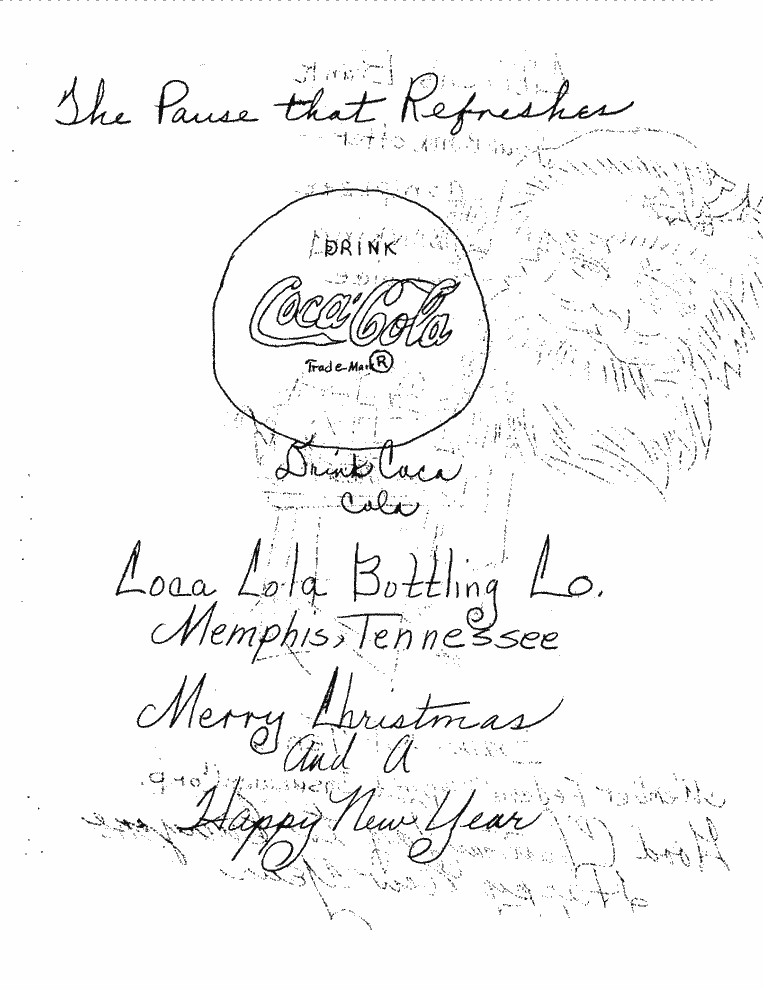 The Pause that Refreshes
DRINK
Coca-Cola
Trade-Mark ®
Drink Coca
Cola
Coca Cola Bottling Co.
Memphis, Tennessee
Merry Christmas
And A
Happy New Year